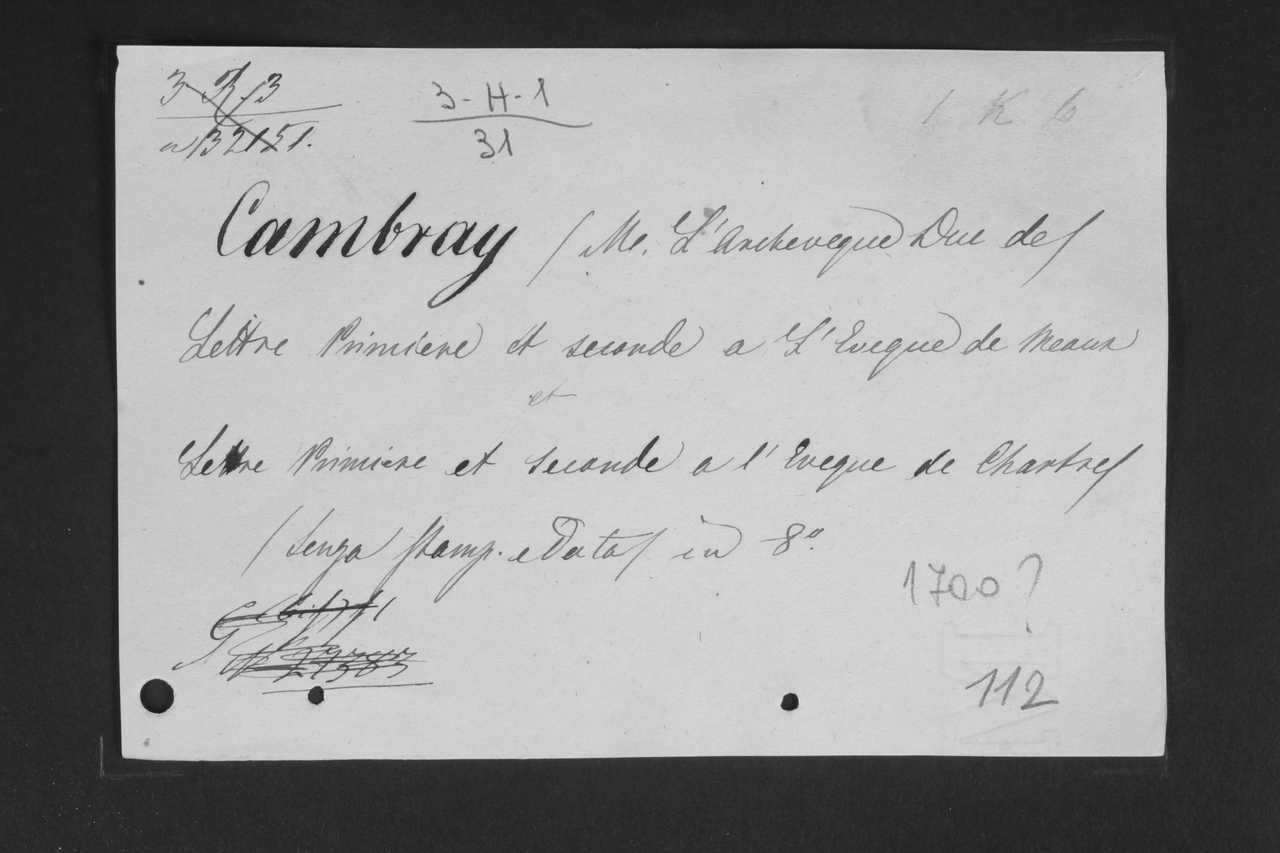 3-H-1
31
1 K 6
Cambray (Mr. L'Archeveque Duc de)
Lettre Primiere et seconde a L'Eveque de Meaux
et
Lettre Primiere et seconde a l'Eveque de Chartres
(senza stamp. e Data) in 8°.
1700?
112